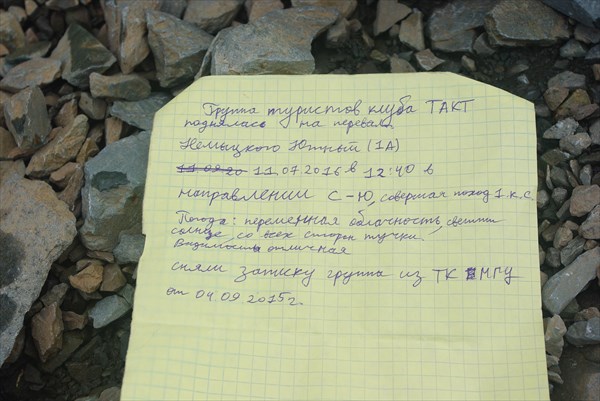 Группа туристов клуба ТАКТ
поднялась на перевал
Немыцкого Южный (1А)
11.07.2016 в 12:40 в
направлении С-Ю, совершая поход 1 к.с.
Погода: переменная облачность, светит
солнце, со всех сторон тучки.
Видимость отличная
сняли записку группа из ТК МГУ
от 04.09.2015г.